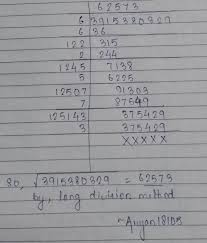 62573
6 3915380329
6 36
122 315
2 244
1245 7138
5 6225
12507 91303
7 87549
125143 375429
3 375429
XXXXX
So, √3915380329 = 62573
by, long division method
~Aryan18105